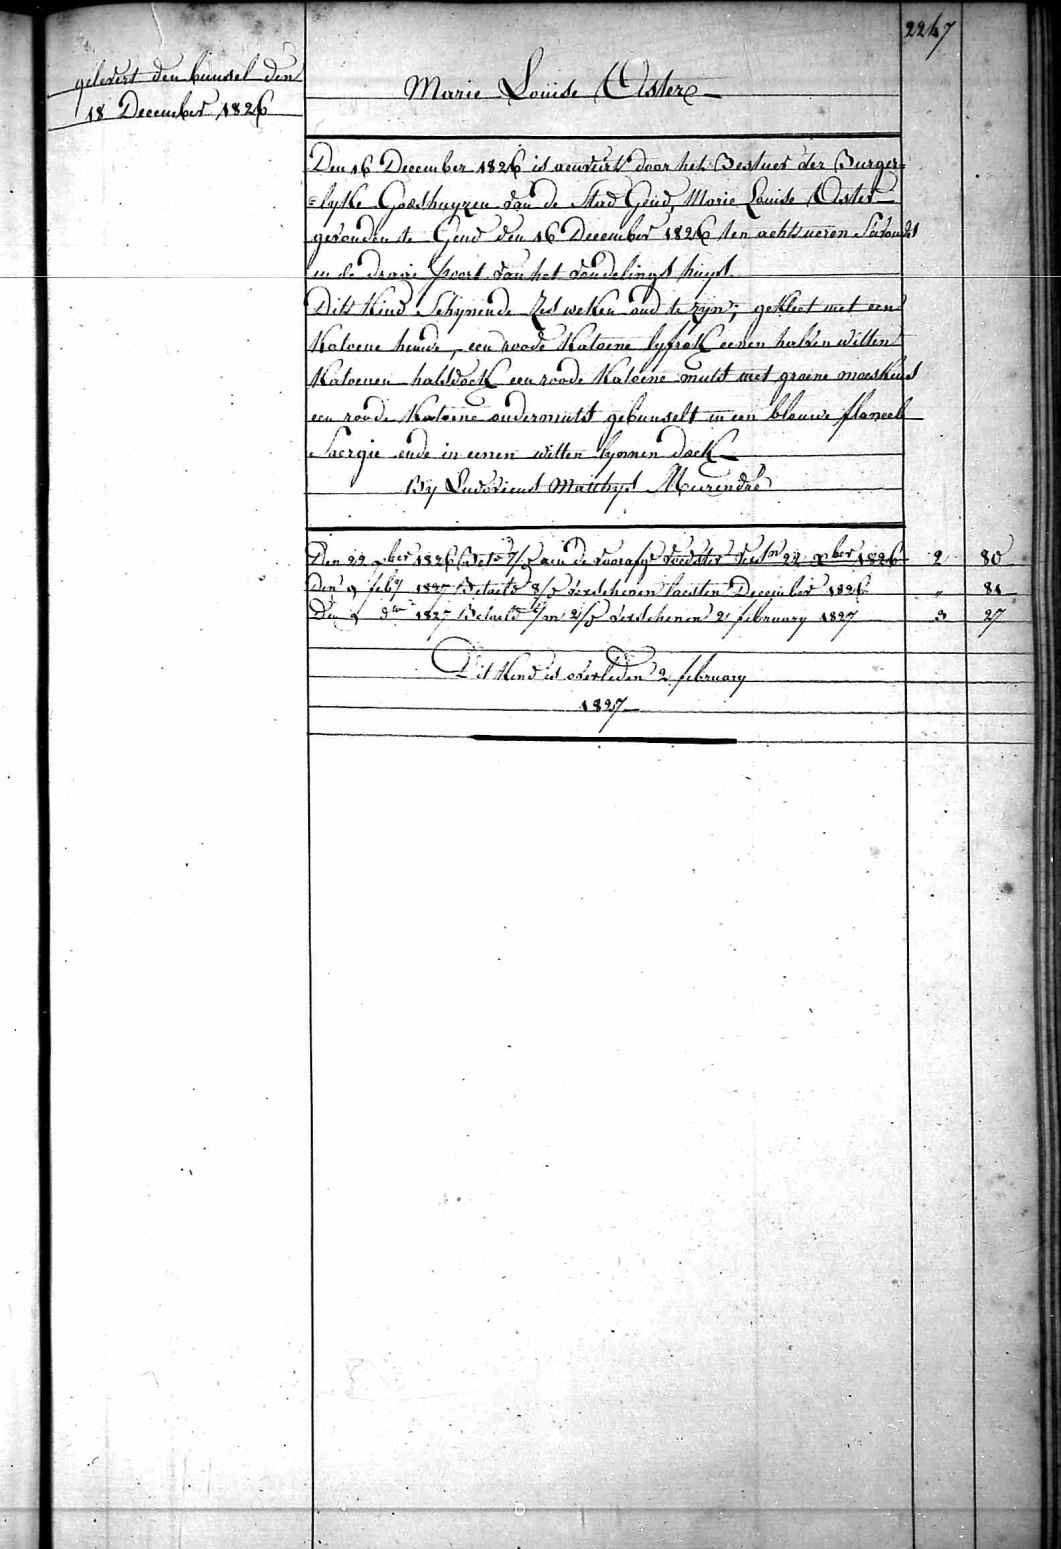 2247
gelevert den bunsel den
18 December 1826
Marie Louise Aster
Den 16 December 1826 is aenveirt door het Bestuer der Burger=
=lyke Godshuyzen van de Stad Gend, Marie Louise Aster
gevonden te Gend den 16 December 1826 ten acht ueren s'avonds
in de draai poort van het vondelingshuys.
Dits kind schynende zes weken oud te zyn, gekleet met een
katoene hemde, een roode katoene lyfrok eenen halven witten
katoenen halsdoek een roode katoene muts met groene
een roode katoene ondermuts gebunselt in een blauwe flaneele
saergie ende in eenen witten lynen doek
By Ludovicus Matthys
Den 22 xber 1826 Bet° aen de voorsz voedster 22 xber 1826 2 80
Den 9 feby 1827 Betaelt verschenen laesten December 1826 " 81
Den 9 d° 1827 Betaelt verschenen 2 february 1827 3 27
Dit kind is overleden 2 february
1827